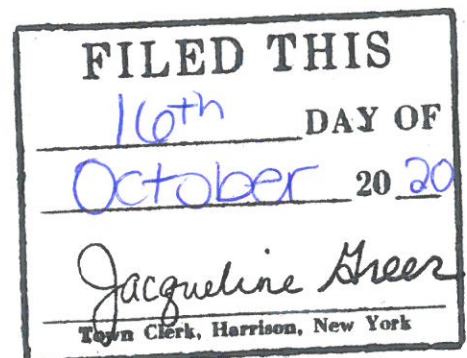 FILED THIS
16th DAY OF
October 20 20
Jacqueline Greer
Town Clerk, Harrison, New York